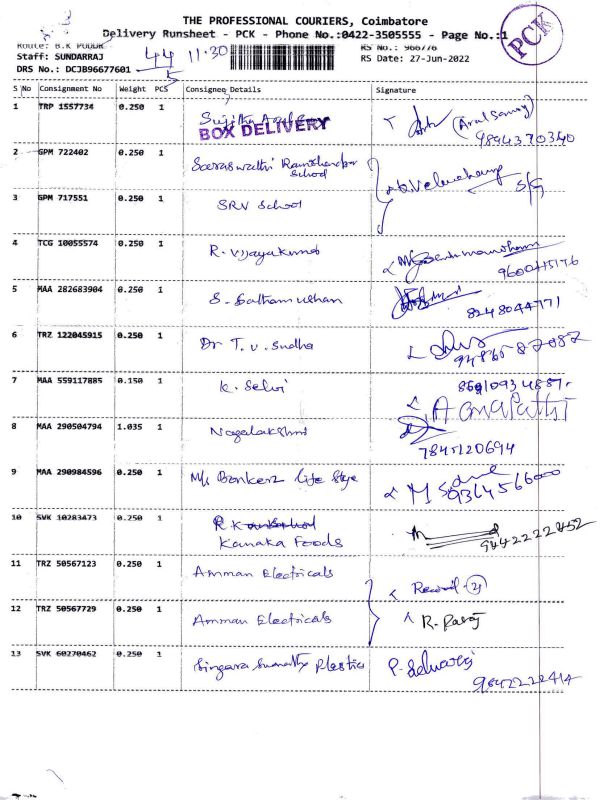 THE PROFESSIONAL COURIERS, Coimbatore
Delivery Runsheet - PCK - Phone No.:0422-3505555 - Page No.:1
PCK
Route: B.K PUDUR
RS No.: 966776
Staff: SUNDARRAJ
44 11.30
RS Date: 27-Jun-2022
DRS No.: DCJB96677601
5
S No Consignment No Weight PCS Consignee Details Signature
1 TRP 1557734 0.250 1
BOX DELIVERY
9894370340
2 GPM 722402 0.250 1 School
S/G
3 GPM 717551 0.250 1 SRV School
4 TCG 10055574 0.250 1 R. Vijayakumar
5 MAA 282683904 0.250 1 S.
8248044771
6 TRZ 122045915 0.250 1 Dr T. V. Sudha
9486587087
7 MAA 559117885 0.150 1 K. Selvi
8 MAA 290504794 1.035 1 Nagalakshmi
7845120694
9 MAA 290984596 0.250 1 M/s Life
9364566000
10 SVK 10283473 0.250 1
Kanaka Foods
9442222452
11 TRZ 50567123 0.250 1 Amman Electricals
12 TRZ 50567729 0.250 1 Amman Electricals
13 SVK 60270462 0.250 1 Singara Plastics P. Selvaraj
9842222414